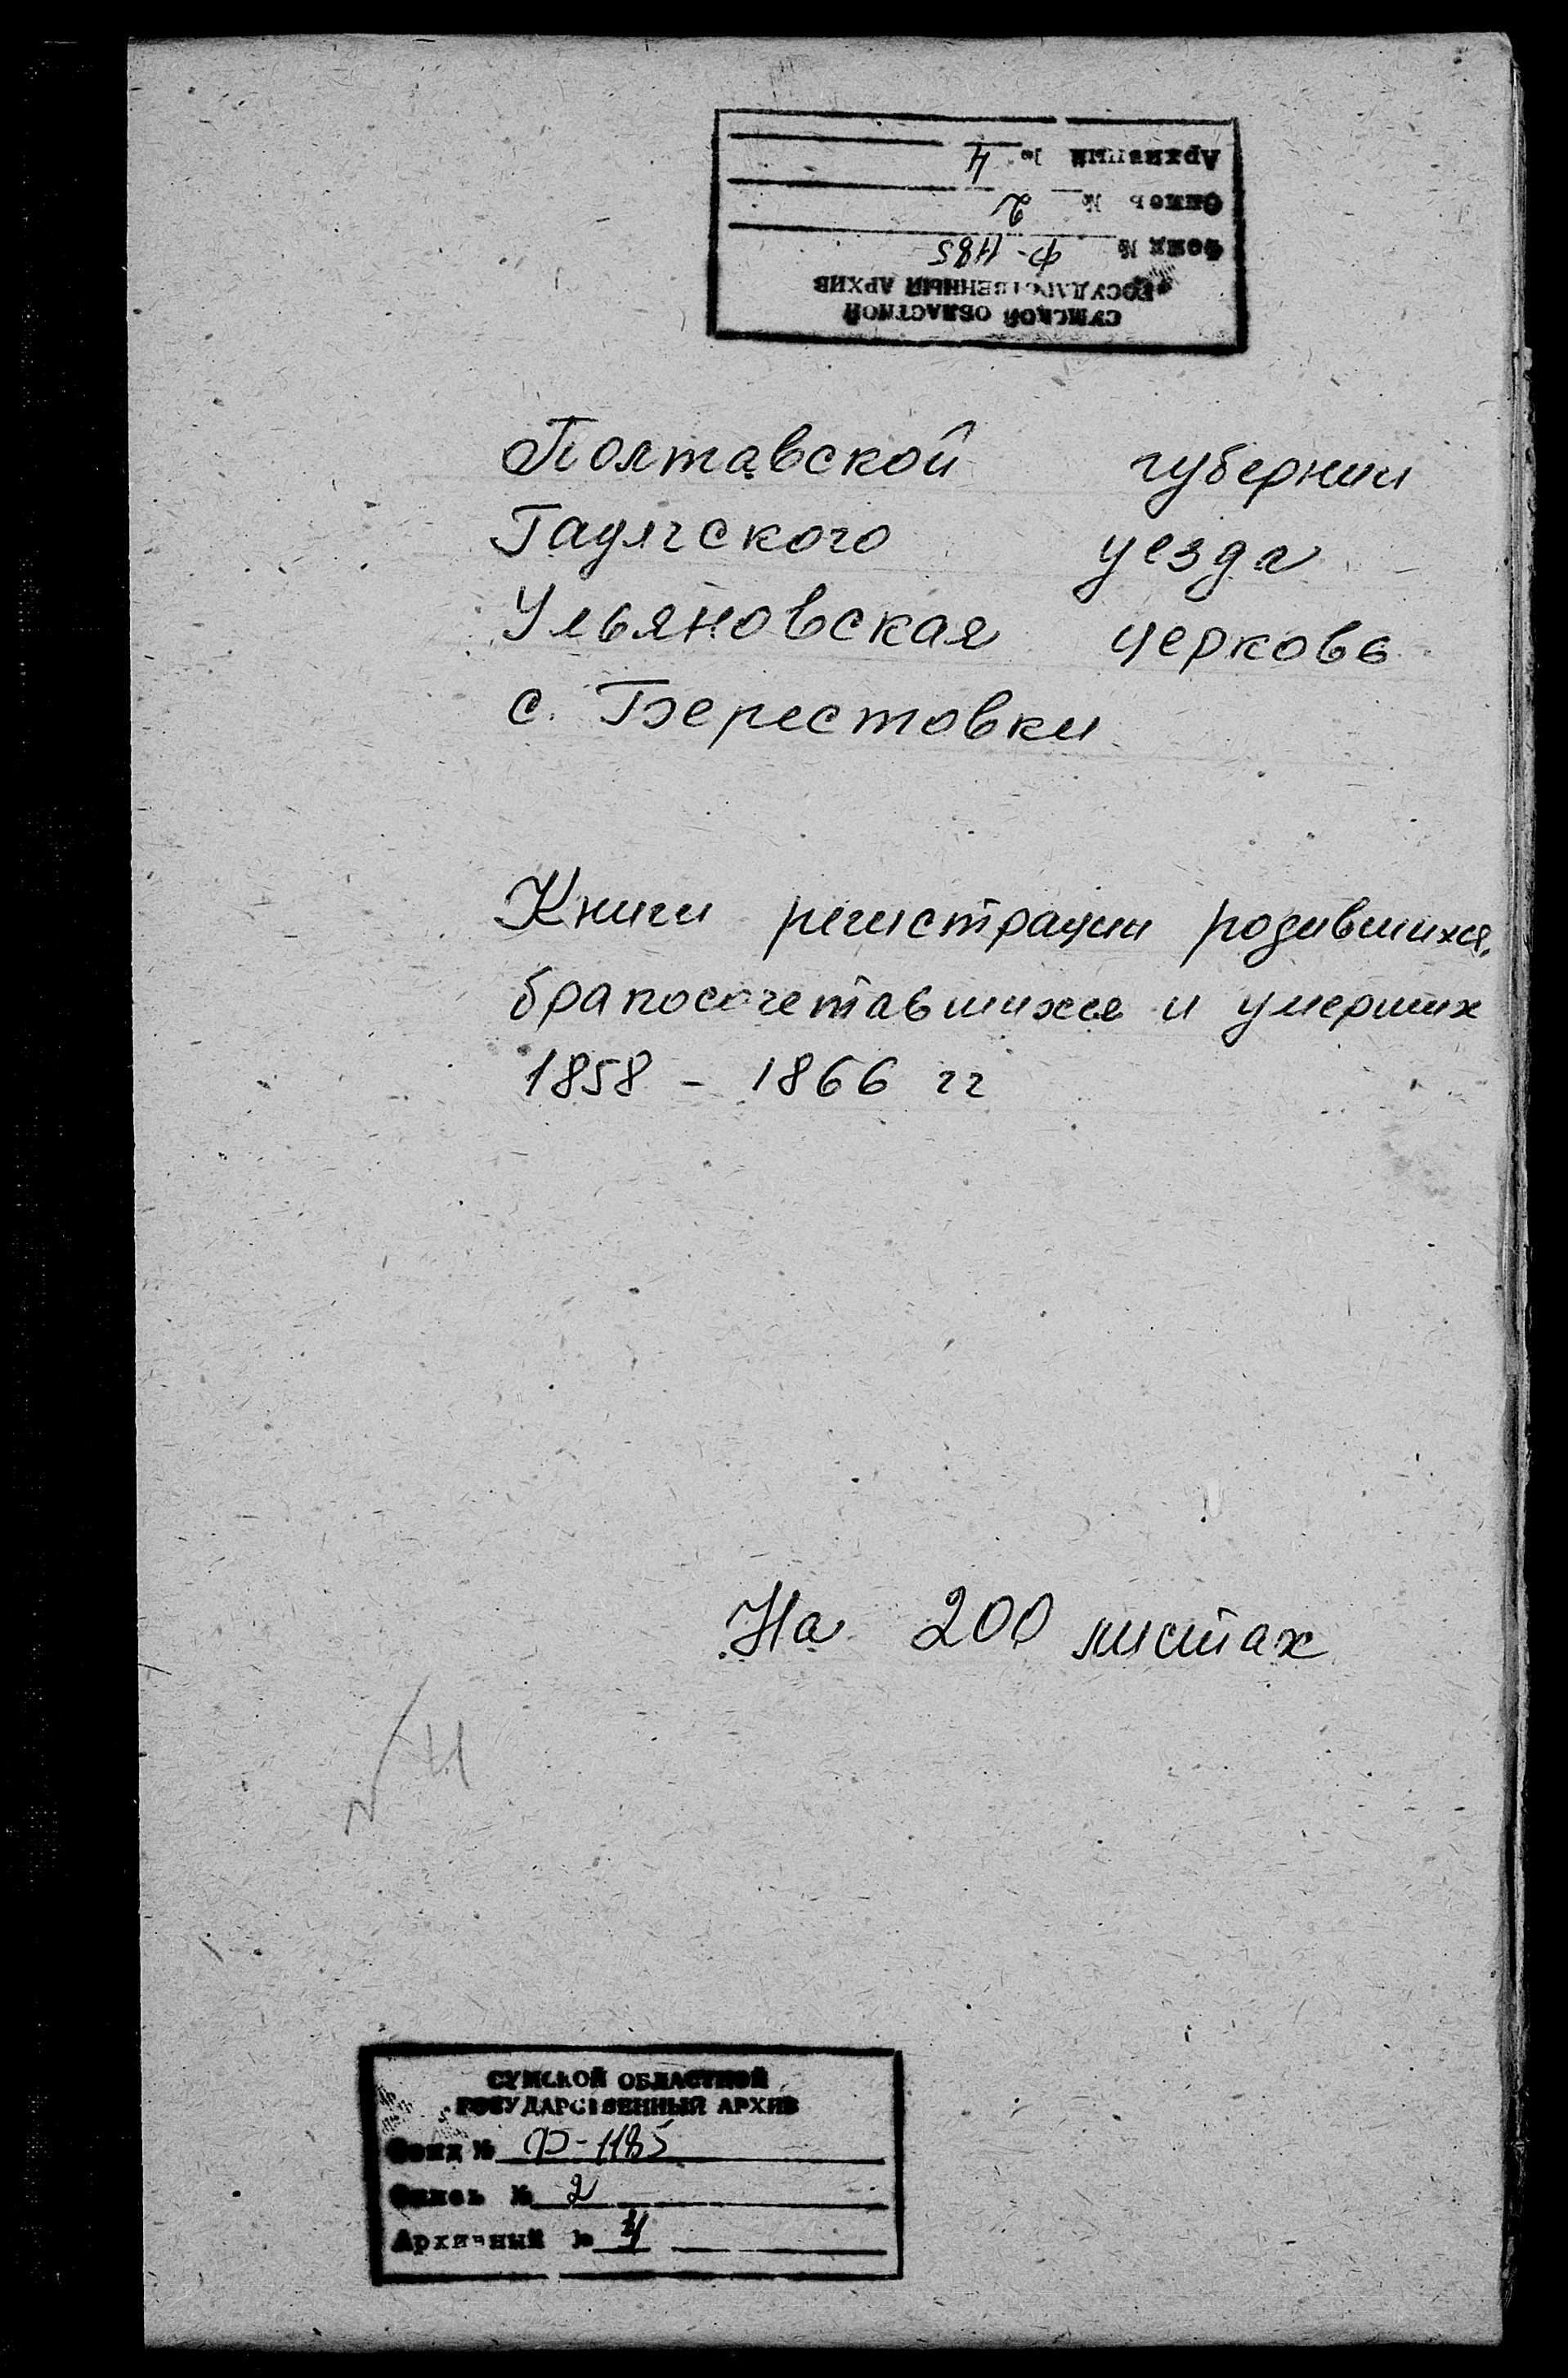 Архивный № 4
Опись № 2
Фонд № Ф-1185
ГОСУДАРСТВЕННЫЙ АРХИВ
СУМСКОЙ ОБЛАСТНОЙ
Полтавской губернии
Гадячского уезда
Ульяновская церковь
с. Берестовки
Книги регистрации родившихся,
бракосочетавшихся и умерших
1858 - 1866 гг
На 200 листах
СУМСКОЙ ОБЛАСТНОЙ
ГОСУДАРСТВЕННЫЙ АРХИВ
Фонд № Ф-1185
Опись № 2
Архивный № 4